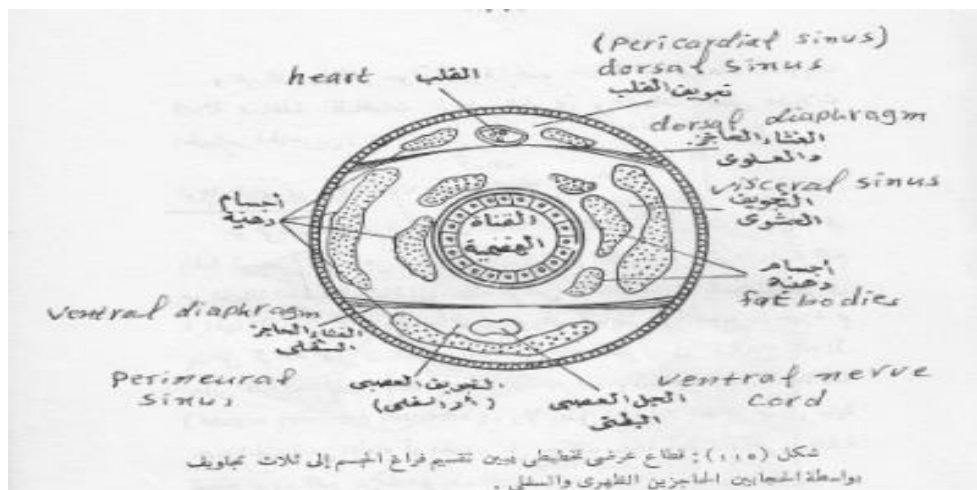 (Pericardial sinus)
heart القلب
dorsal sinus
تجويف القلب
dorsal diaphragm
الغشاء الحاجز
والعلوى
visceral sinus
التجويف
الحشوى
أجسام
دهنية
القناة
الهضمية
أجسام
دهنية
fat bodies
ventral diaphragm
الغشاء الحاجز
السفلى
Perineural
sinus
التجويف العصبى
(أو السفلى)
الحبل العصبى
البطنى
ventral nerve
cord
شكل (١١٥): قطاع عرضى تخطيطى يبين تقسيم فراغ الجسم إلى ثلاث تجاويف
بواسطة الحجابين الحاجزين الظهرى والسفلى.